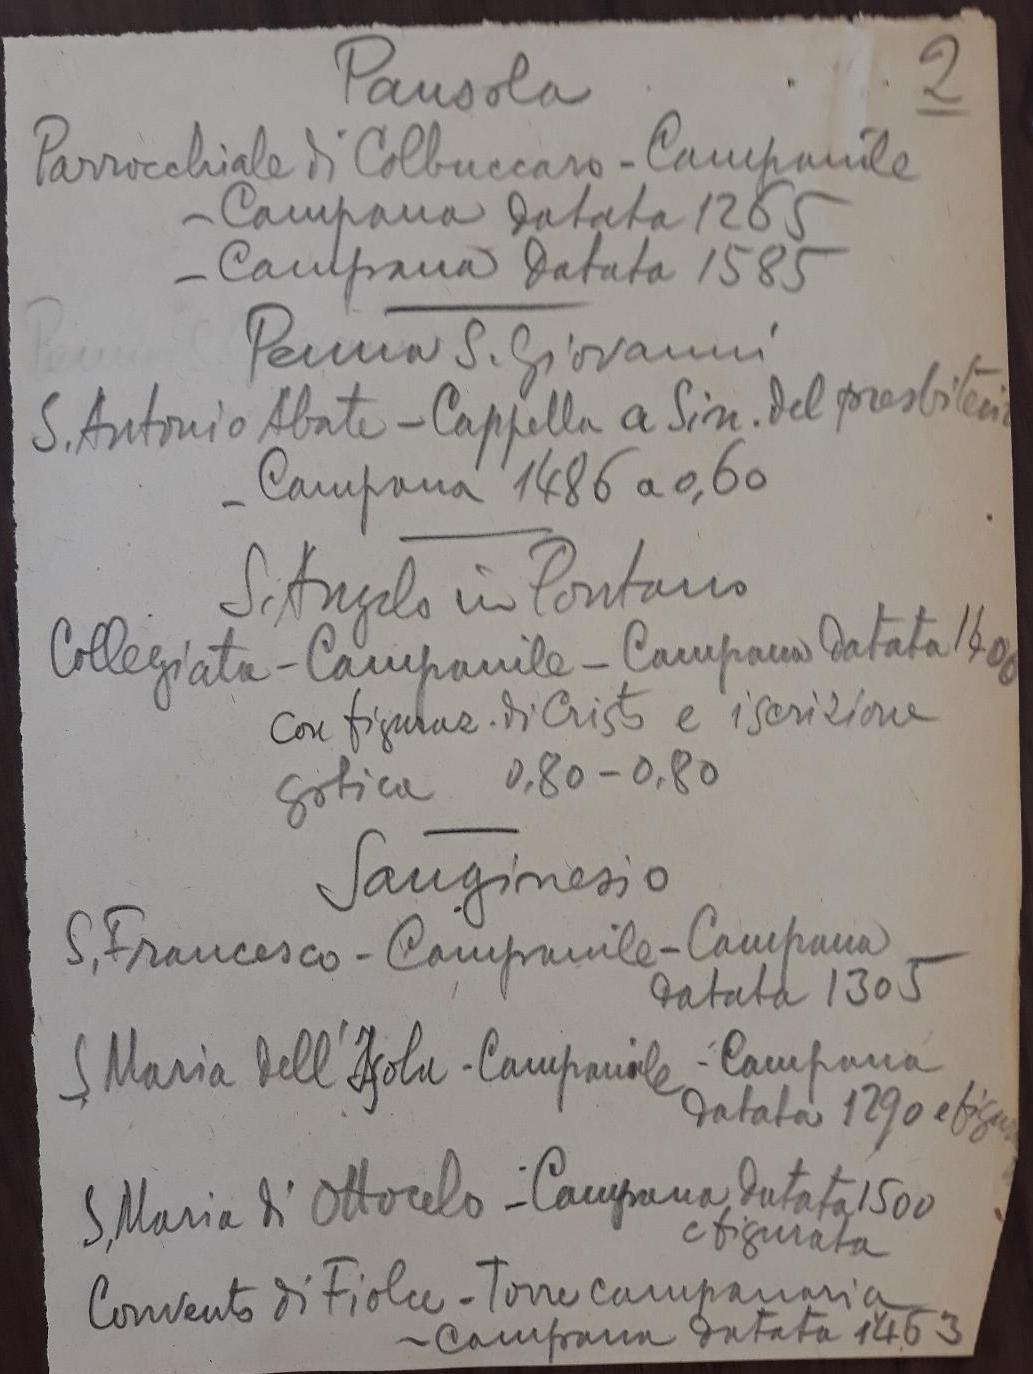 2
Pausola
Parrocchiale di Colbuccaro - Campanile
- Campana datata 1265
- Campana datata 1585
Penna S. Giovanni
S. Antonio Abate - Cappella a Sin. del presbiterio
- Campana 1486 a 0,60
S. Angelo in Pontano
Collegiata - Campanile - Campana datata 1400
con figuraz. di Cristo e iscrizione
gotica 0,80 - 0,80
Sanginesio
S. Francesco - Campanile - Campana
datata 1305
S. Maria dell'Isola - Campanile - Campana
datata 1290 e
S. Maria di Ottocelo - Campana datata 1500
e figurata
Convento di - Torre campanaria
- Campana datata 1463